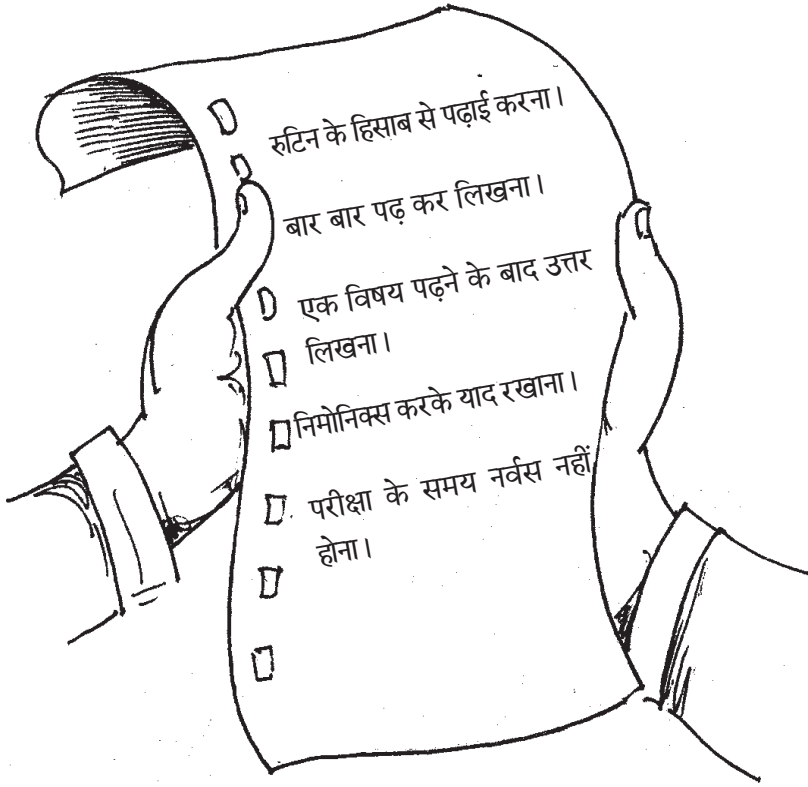 रुटिन के हिसाब से पढ़ाई करना।
बार बार पढ़ कर लिखना।
एक विषय पढ़ने के बाद उत्तर
लिखना।
निमोनिक्स करके याद रखाना।
परीक्षा के समय नर्वस नहीं
होना।